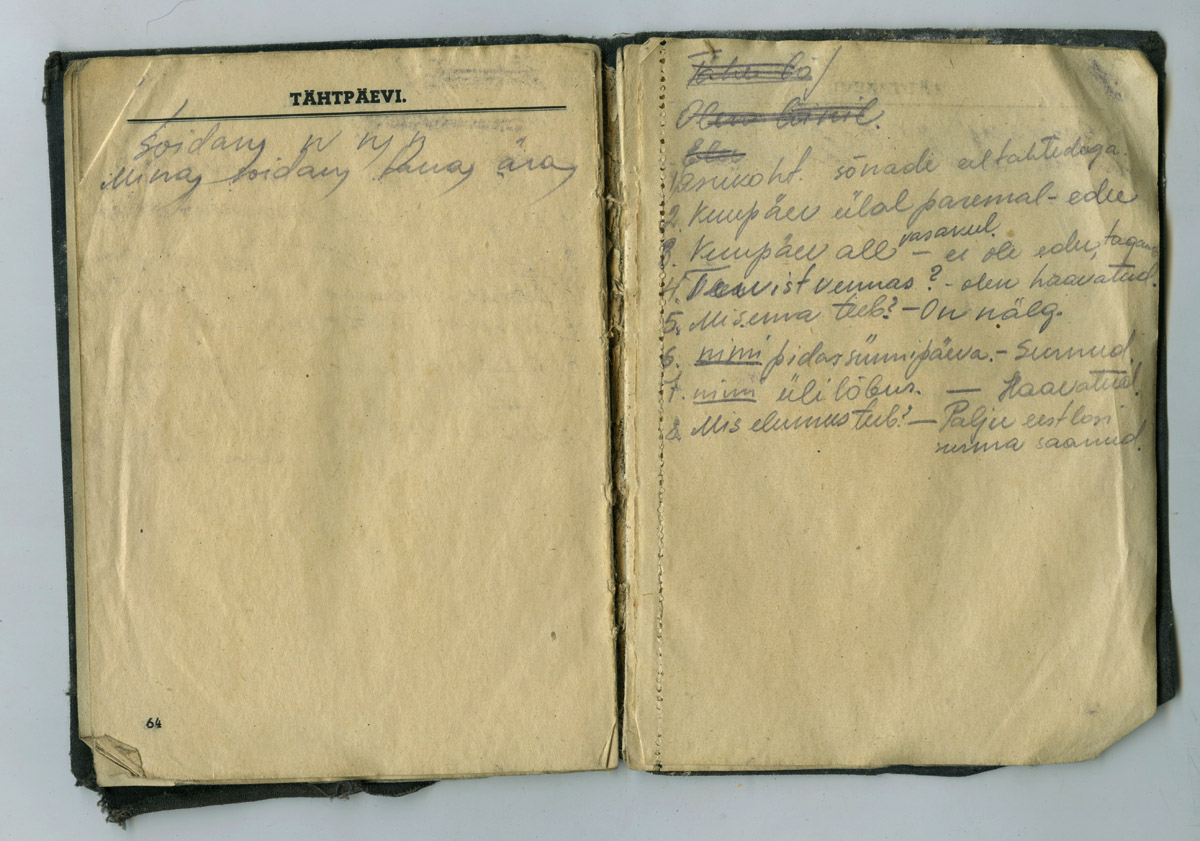 TÄHTPÄEVI.
Sõidan
Mina sõidan täna ära
64
1. Asukoht. sõnade eeltähtedega.
2. Kuupäev ülal paremal - edu
3. Kuupäev all vasakul. - ei ole edu,
4. Tervist vennas? - olen haavatud.
5. Mis ema teeb? - On nälg.
6. nimi pidas sünnipäeva. - Surnud.
7. nimi üli lõbus. - Haavatud.
8. Mis elu teeb? - Palju eestlasi
surma saanud.